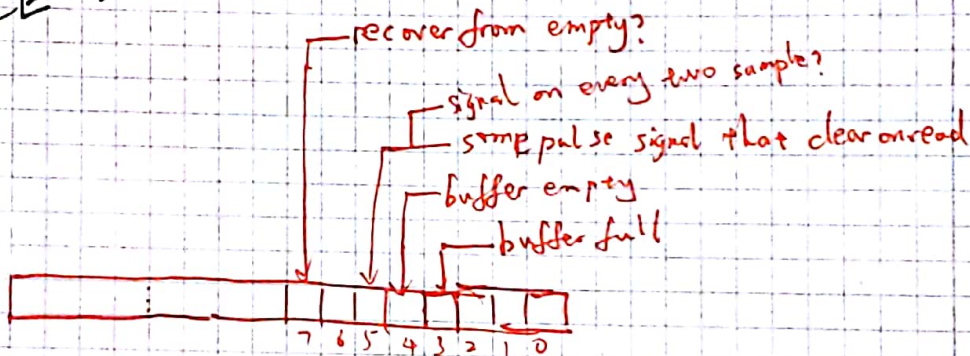 recover from empty?
signal on every two sample?
some pulse signal that clear on read
buffer empty
buffer full
7 6 5 4 3 2 1 0